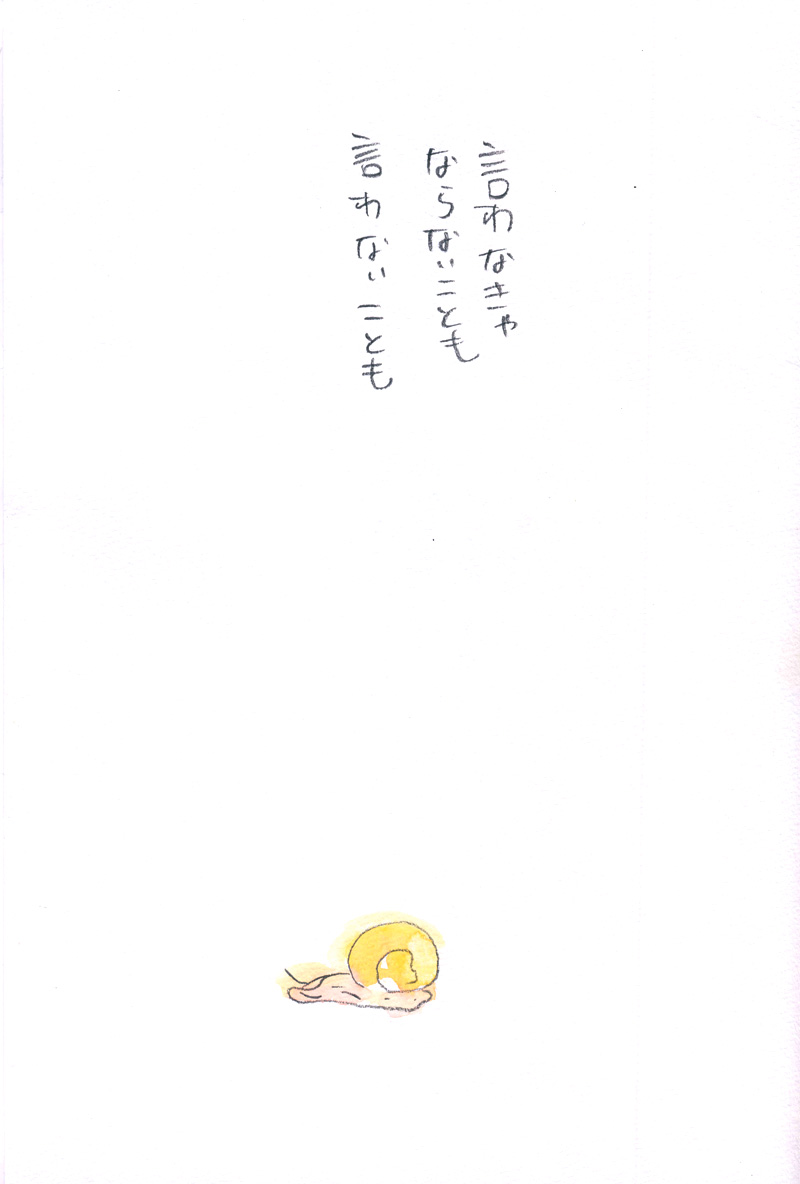 言わなきゃ
ならないことも
言わないことも